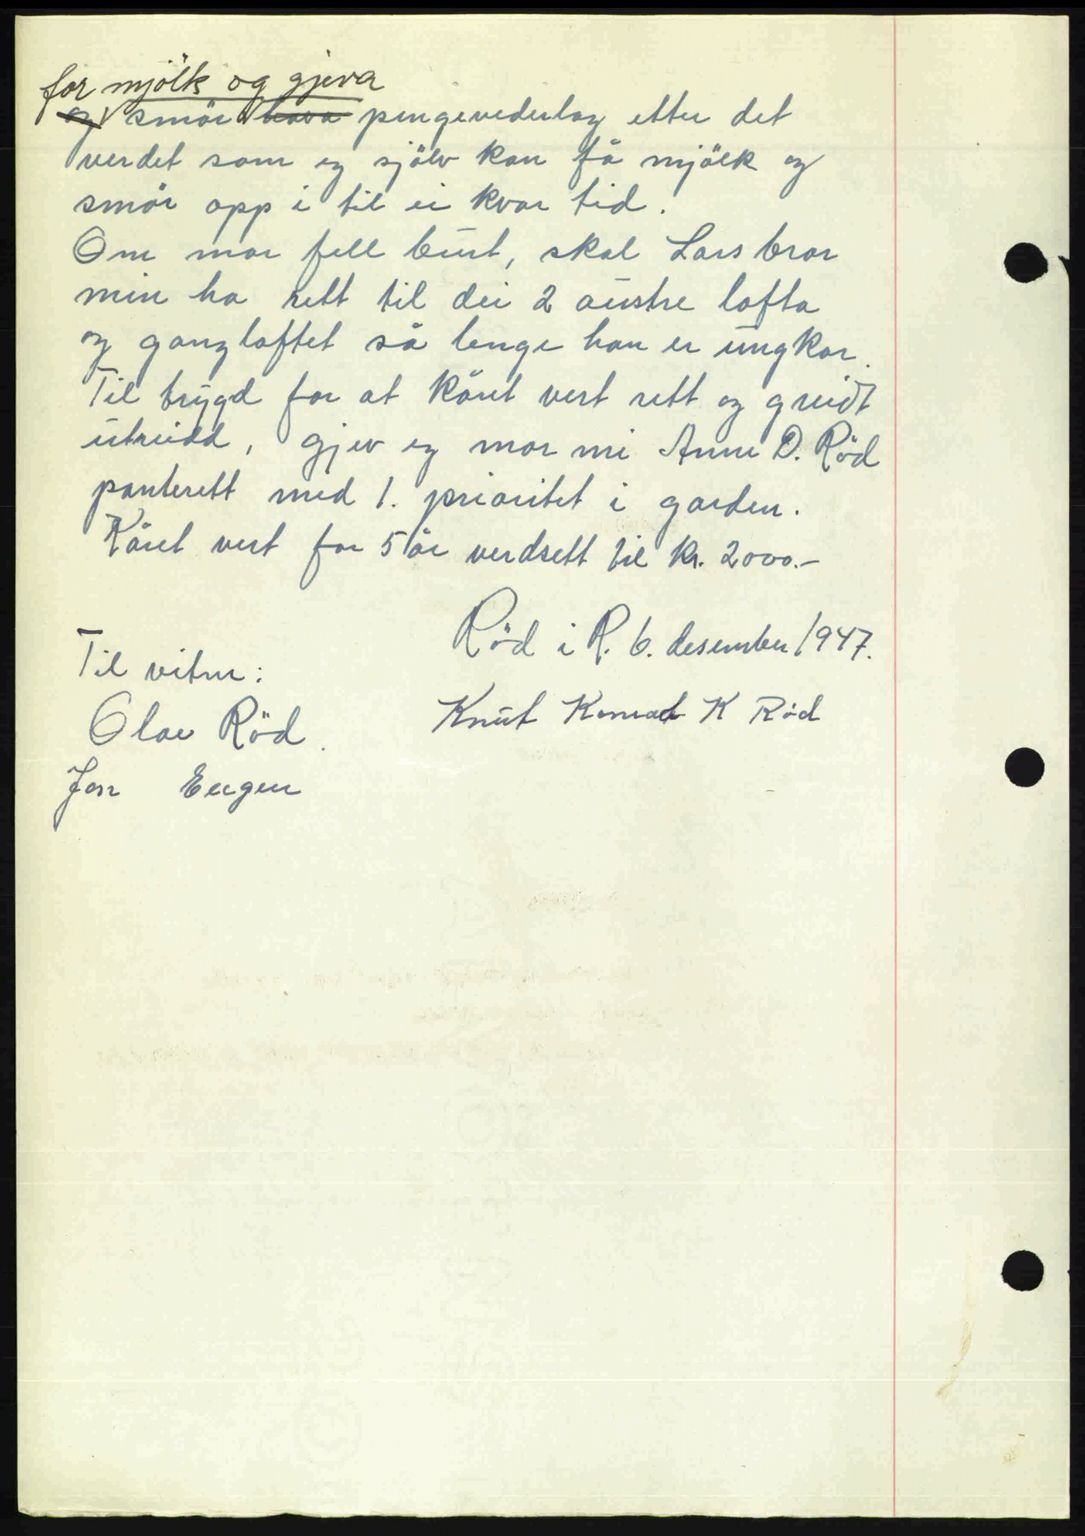 for mjölk og gjeva
og smör hava pengevederlag etter det
verdet som eg sjölv kan få mjölk og
smör opp i til ei kvar tid.
Om mor fell burt, skal Lars bror
min ha rett til dei 2 austre lofta
og gangloftet så lenge han er ungkar.
Til trygd for at kåret vert rett og greidt
utreidd, gjev eg mor mi Anne O. Röd
panterett med 1. prioritet i garden.
Kåret vert for 5 år verdsett til kr. 2000.-
Röd i R. 6. desember 1947.
Til vitne:
Knut Konrad K Röd
Olav Röd.
Jon